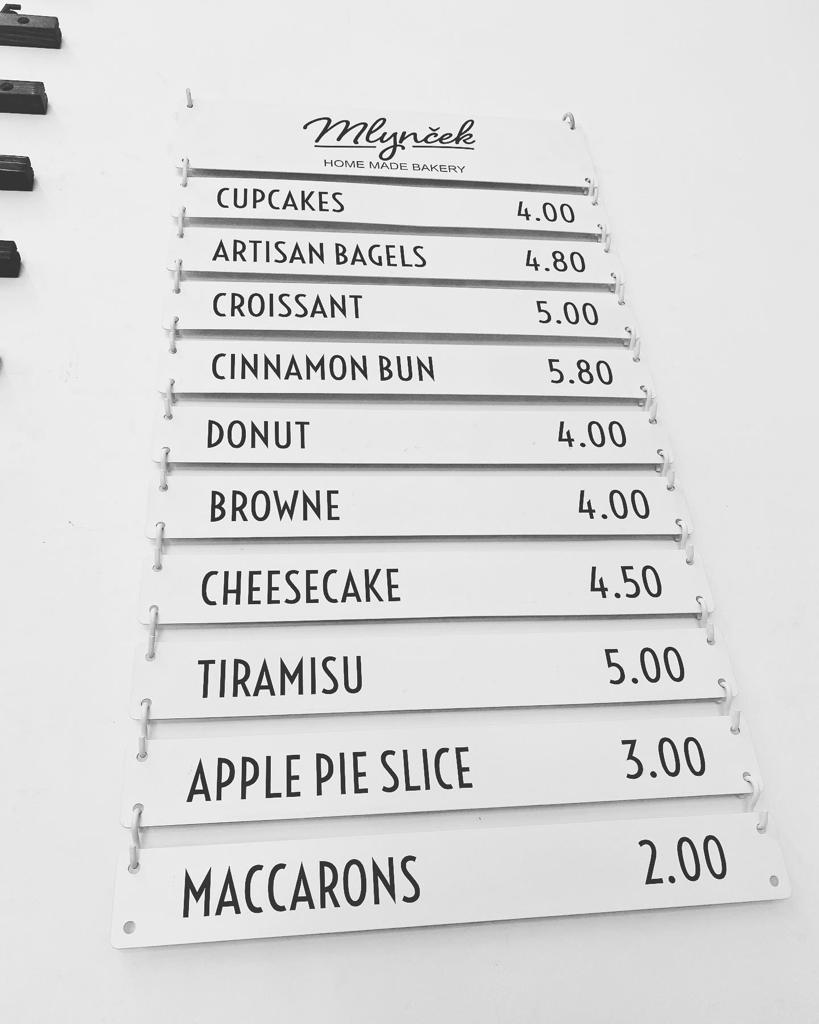 Mlynček
HOME MADE BAKERY
CUPCAKES 4.00
ARTISAN BAGELS 4.80
CROISSANT 5.00
CINNAMON BUN 5.80
DONUT 4.00
BROWNE 4.00
CHEESECAKE 4.50
TIRAMISU 5.00
APPLE PIE SLICE 3.00
MACCARONS 2.00